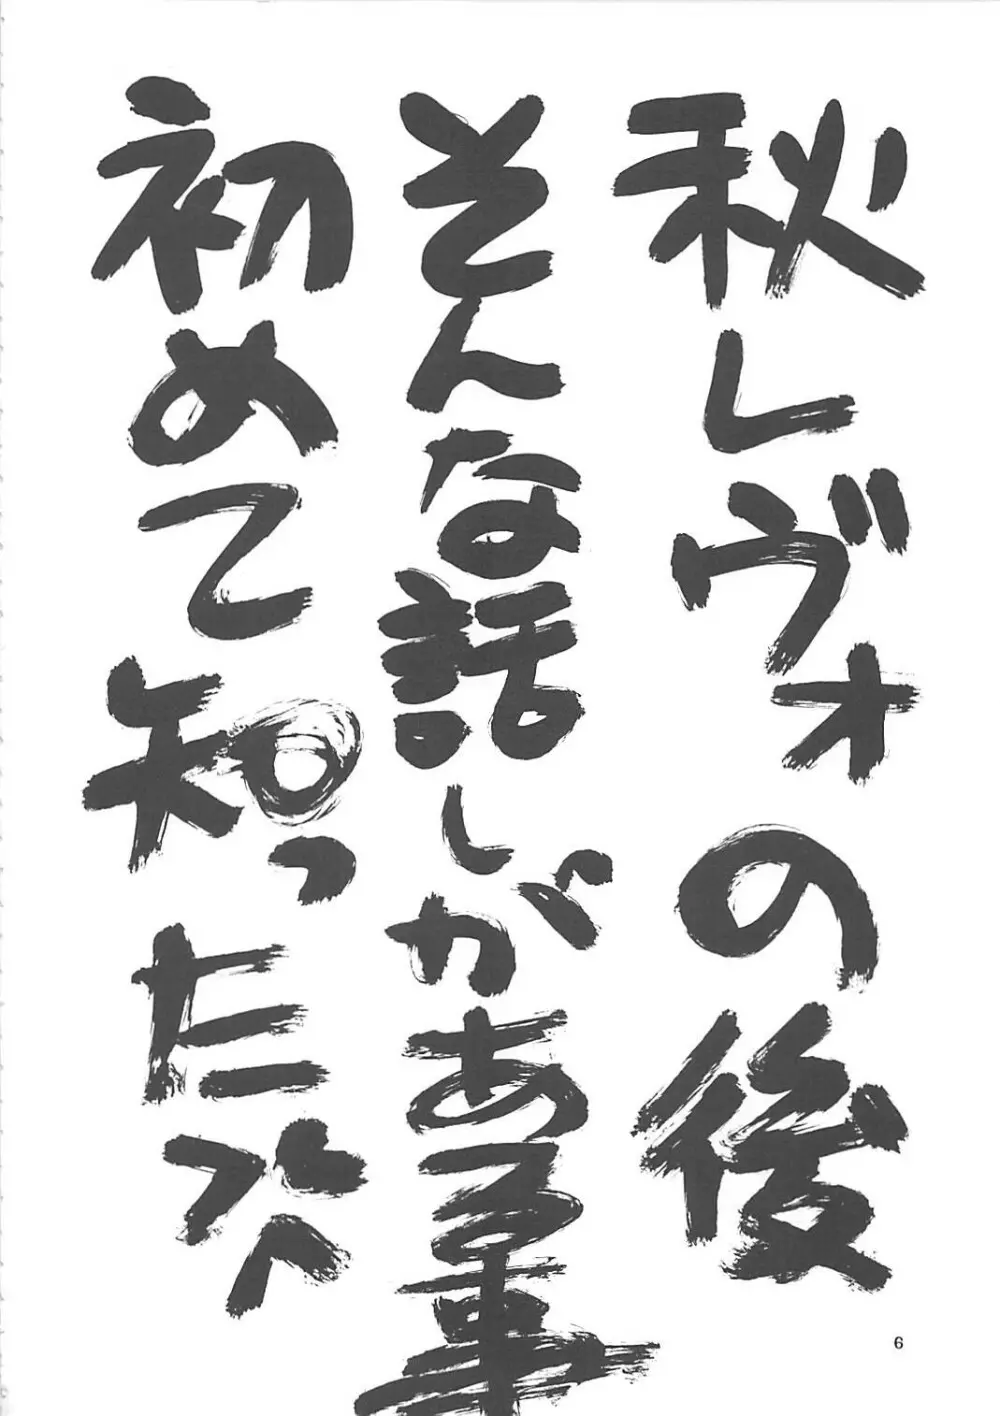 秋レヴォの後
そんな話しがある事
初めて知った次
6